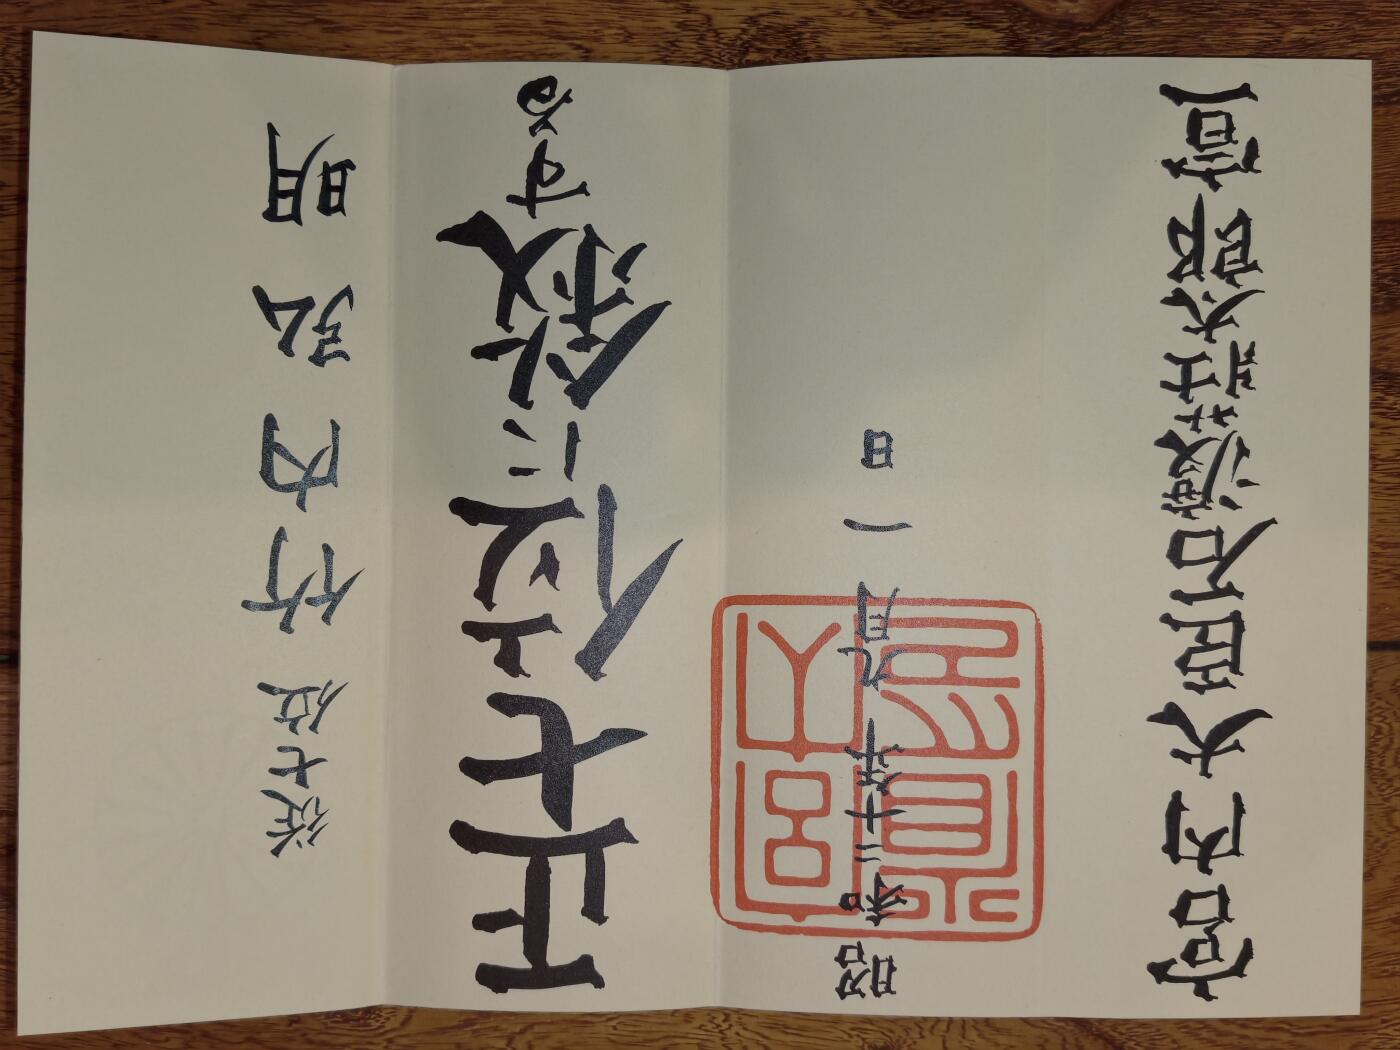 從七位竹内弘明
正七位に敍する
昭和二十年九月一日
宮内省印
宮内大臣石渡莊太郎宣